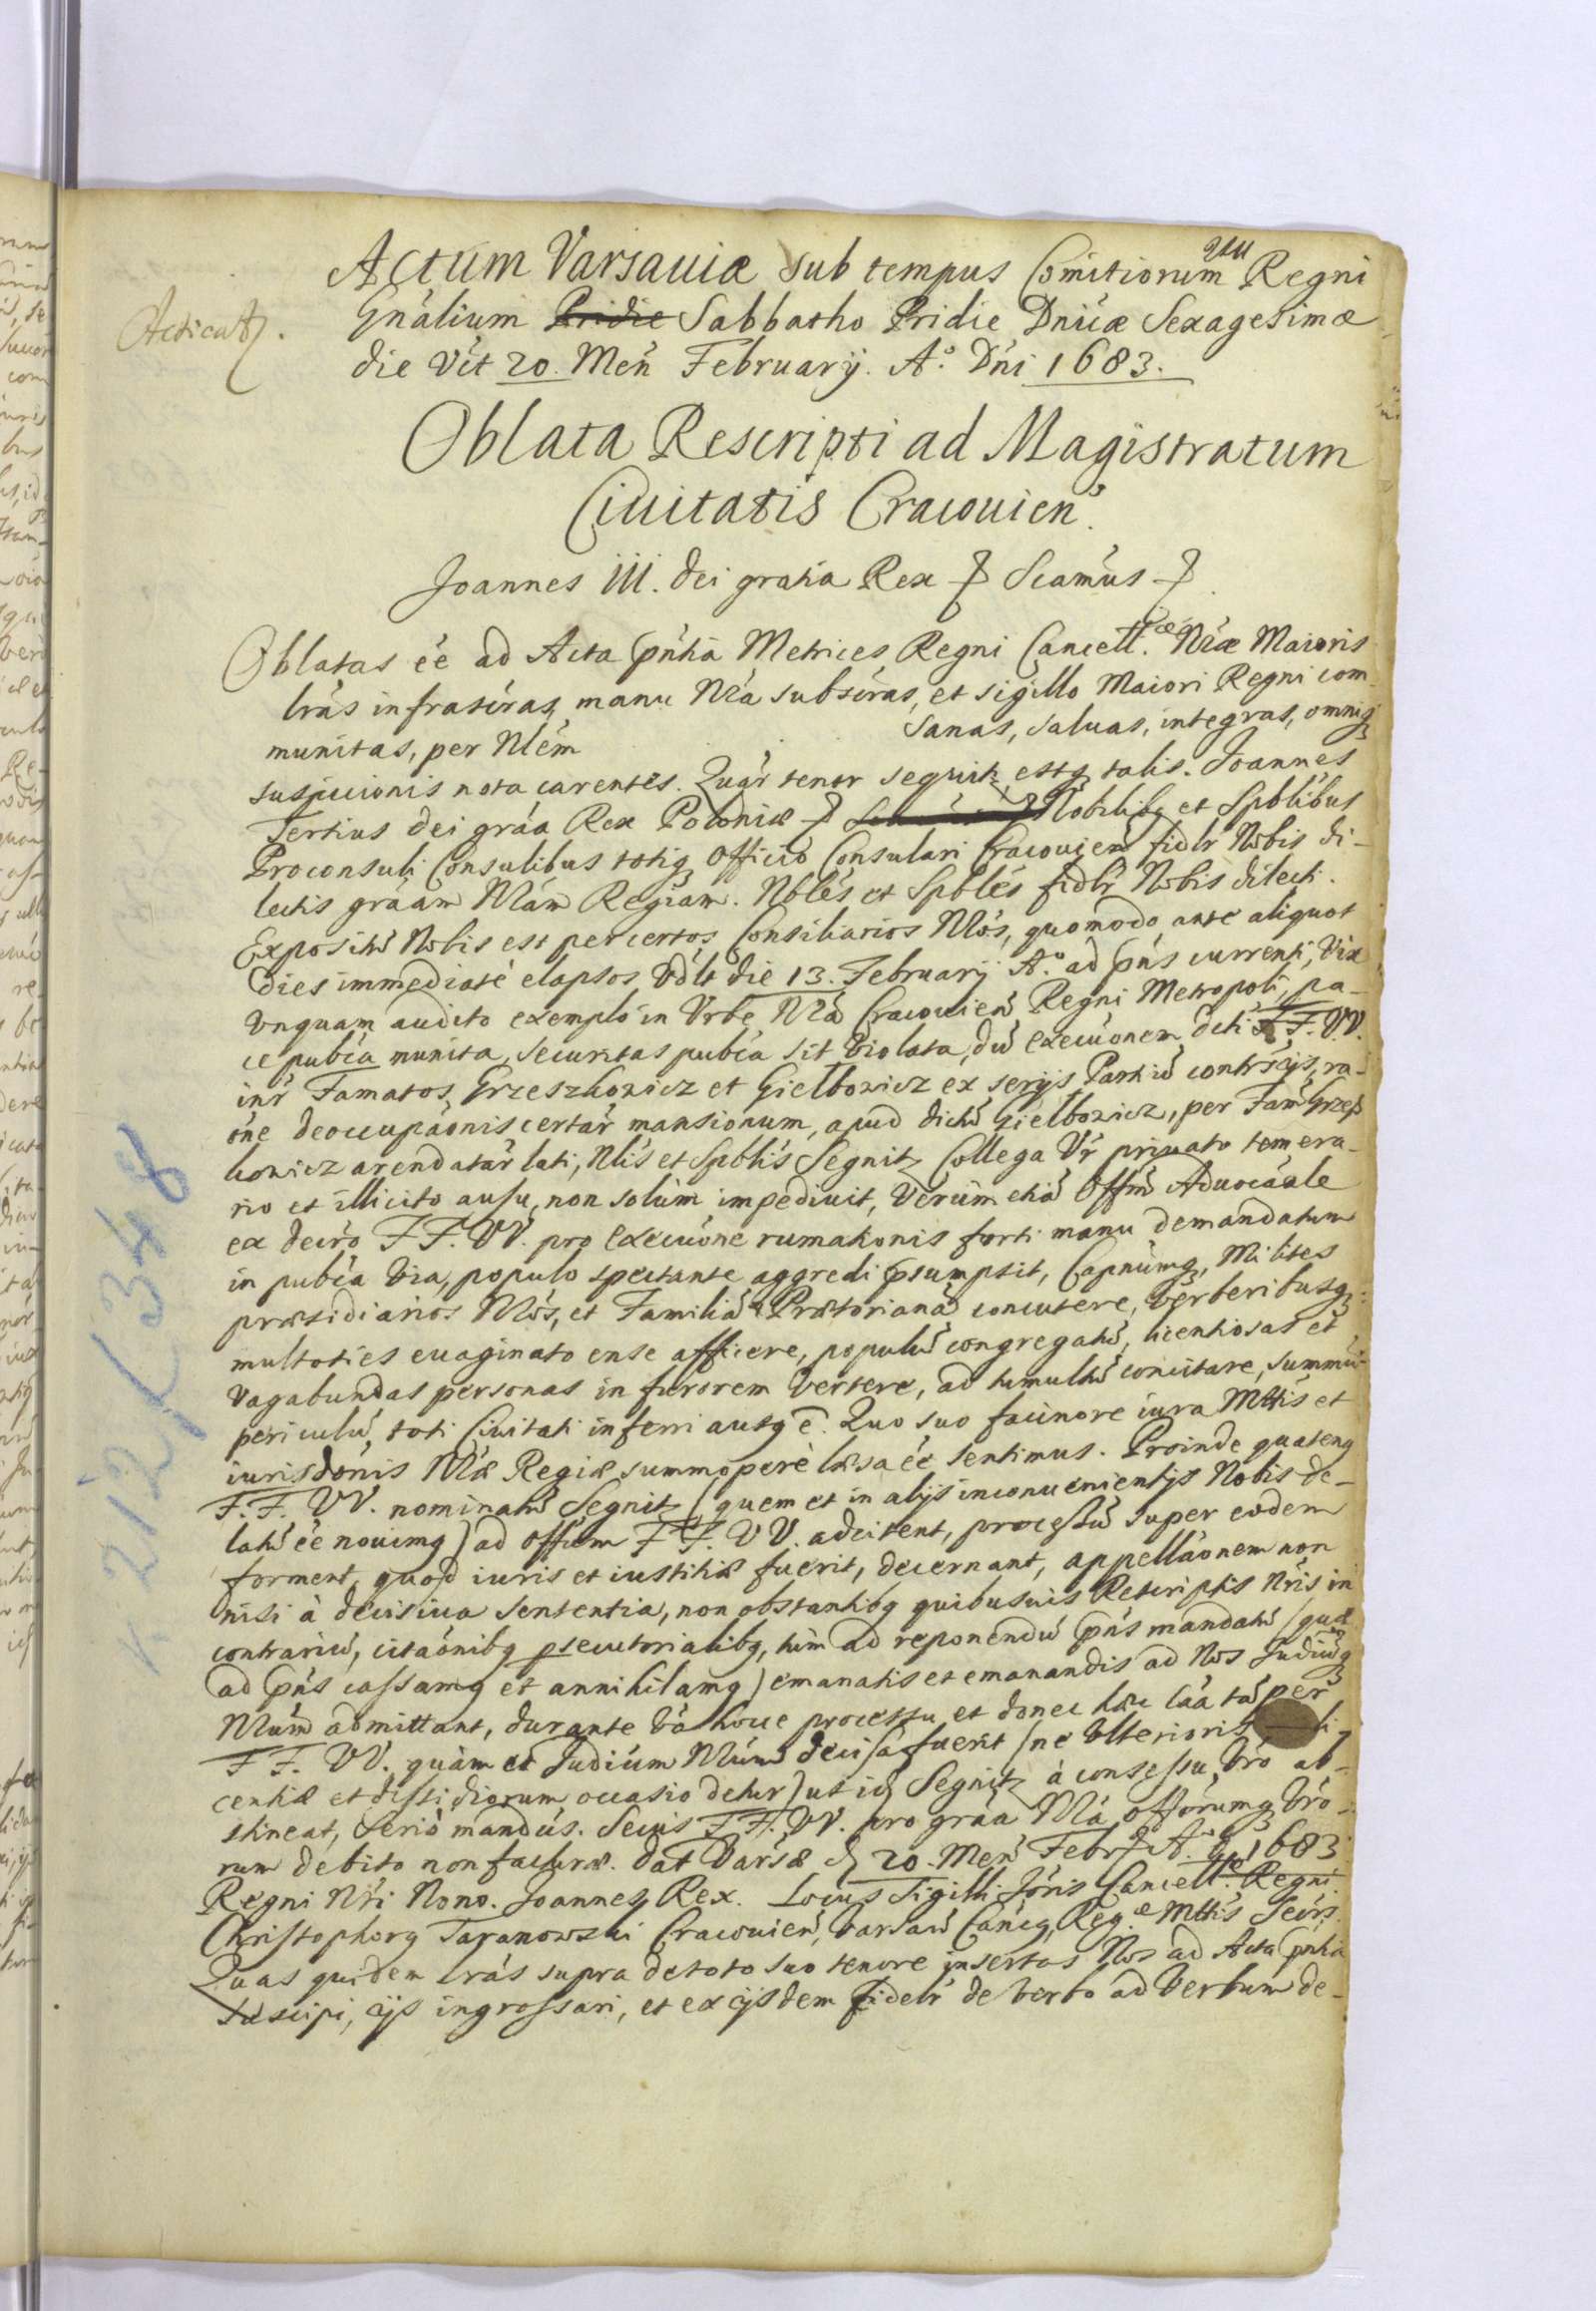 Actum Varsaviæ sub tempus Comitiorum Regni
Acticat.
Gnálium Pridie Sabbatho Pridie Dnicæ Sexagesimæ
die Vct 20. Men̄ Februarÿ. A.º Dn̄i 1683.
Oblata Rescripti ad Magistratum
Ciuitatis Cracouien̄.
Joannes III. dei gratia Rex Scamús
Oblatas eē ad Acta pn̄tia Metrices Regni Cancell. Nr̄æ Maioris
lr̄as infrascr̄as, manu Nr̄a subscr̄as, et sigillo Maiori Regni com
munitas, per Nlem̄ sanas, saluas, integras, omniq
suspicionis nota carentes. Quar̄ tenor sequitr, estq talis. Joannes
Tertius dei gra̅a Rex Poloniæ Nobilibq et Spblibus
Proconsuli Consulibus totiq Officio Consulari Cracouien̄ fidlr Nobis di-
lectis gra̅am N̄ram Regiam. Nbles et Spbles fidlr Nobis dilecti.
Expositū Nobis est per certos Consiliarios Nr̄os, quomodo ante aliquot
dies immediatè elapsos, vdlt die 13. Februarÿ A.º ad pn̄s currenti, vix
vnquam audito exemplo in Vrbe Nr̄a Cracouien̄ Regni Metropoli, pa-
ce pubca munita, securitas pubca sit violata, dū execuonem dcti F.F. V.V.
intr̄ Famatos, Grzeszkowicz et Gielbowicz ex serÿs Partiū contrscÿs, ra-
one deoccupaonis certar̄ mansionum, apud dictū Gielbowicz, per Fam̄ Grzesz
kowicz arendatar̄ lati, Nlis et Spblis Segnitz Collega Vr̄ priuato temera-
rio et illicito ausu, non solùm impediuit, verùm etiā Offm̄ Aduocaale
ex decro FF. VV. pro execuone rumationis forti manu demandatum
in pubca via, populo spectante aggredi prsumpsit, Capneumq, Milites
præsidiarios Nr̄os, et Familiā Prætorianā concutere, verberibusq
multoties euaginato ense afficere, populū congregatū, licentiosas et
vagabundas personas in furorem vertere, ad tumultū concitare, summū-
periculū, toti Ciuitati inferri ausq ē. Quo suo facinore iura Mttis et
iurisdonis Nr̄æ Regiæ summoperè læsa eē sentimus. Proinde quatenq
F.F. VV. nominatū Segnitz (quem et in alÿs inconuenientÿs Nobis de-
latū eē nouimq) ad offiem FF. VV. adcitent, processū super eodem
forment, quod iuris et iustitiæ fuerit, decernant, appellaonem non
nisi à decisiua sententia, non obstantibq quibusuis Rescriptis Nr̄is in
contrariū, citaonibq psecutorialibq, tùm ad reponendū pn̄s mandatū (quæ
ad pn̄s cassamq et annihilamq) emanatis et emanandis ad Nos Judiūq
Nr̄um admittant, durante vo hocce processu et donec hæc caa tā per
FF. VV. quàm et Judicium Nr̄um decisa fuerit (ne vlterioris
centiæ et dissidiorum occasio detur) ut id Segnitz à consessu Vr̄o ab-
stineat, seriò mandūs. Secus FF. VV. pro graa Nr̄a, offorumq Vr̄o-
rum debito non facturæ. Dat Varsæ d 20. Men̄ Febr A. 1683
Regni Nr̄i Nono. Joannes Rex. Locus Sigilli Joris Cancell. Regni.
Christophorq Taranowski Cracouien̄, Varsau̅ Cancq, Reg.æ Mttis Secrs.
Quas quidem lr̄as supra de toto suo tenore insertas Nos ad Acta pn̄tia
suscipi, ÿs ingrossari, et ex ÿsdem fidelr de verbo ad verbum de-
K 212/348